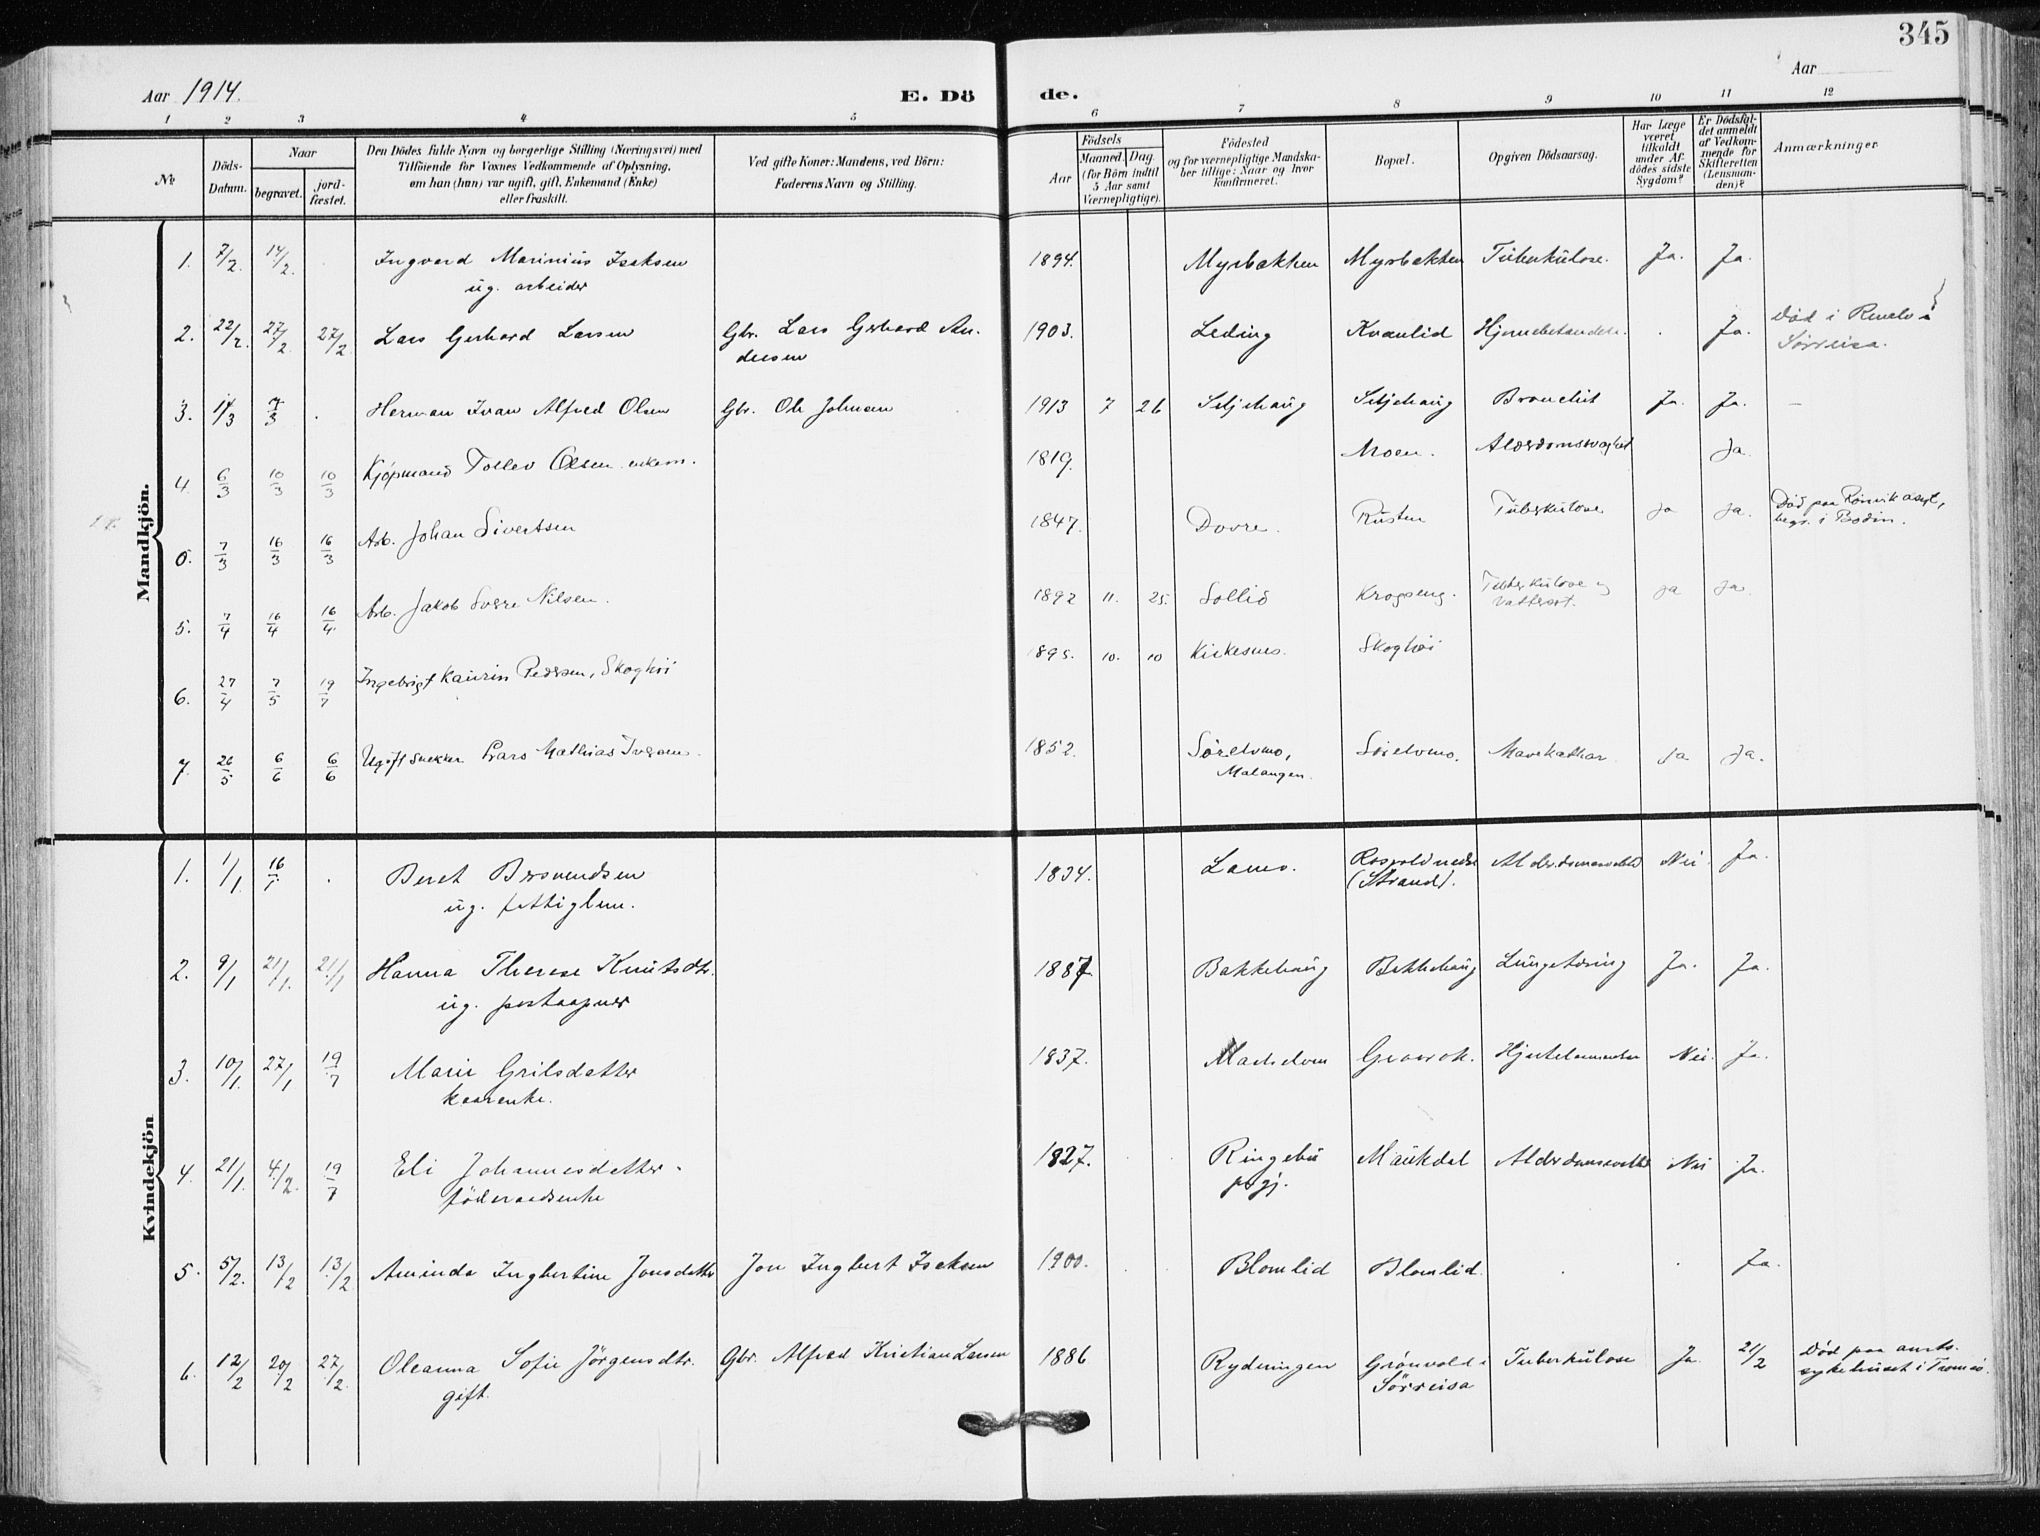 345
Aar 1914.
E. Dö de.
Aar
1 2 3 4 5 6 7 8 9 10 11 12
№
Döds-
Datum.
Naar
begravet.
jord-
fæstet.
Den Dödes fulde Navn og borgerlige Stilling (Næringsvei) med
Tilföiende for Voxnes Vedkommende af Oplysning,
om han (hun) var ugift, gift, Enkemand (Enke)
eller fraskilt.
Ved gifte Koner: Mandens, ved Börn:
Faderens Navn og Stilling.
Födsels
Aar
Maaned. Dag
(for Börn indtil
5 Aar samt
Værnepligtige).
Födested
og for værnepligtige Mandska-
ber tillige: Naar og hvor
konfirmeret.
Bopæl.
Opgiven Dödsaarsag.
Har Læge
været
tilkaldt
under Af-
dödes sidste
Sygdom?
Er Dödsfal-
det anmeldt
af Vedkom-
mende for
Skifteretten
(Lensman-
den)?
Anmærkninger
Mandkjön.
1. 7/2 14/2 . Ingvard Marinius Isaksen 1894. Myrbakken Myrbakken Tuberkulose. Ja. Ja.
ug. arbeider
2. 22/2 27/2 27/2 Lars Gerhard Larsen Gbr. Lars Gerhard An- 1903. Leding Kvanlid . Ja. Död i
dersen Sörreisa.
3. 1/3 7/3 . Herman Ivar Alfred Olsen Gbr. Ole Johnsen 1913 7 26 Seljehaug Seljehaug Bronchit Ja. Ja. —
4. 6/3 10/3 10/3 Kjöpmand Tollev Olsen enkem. 1819. Moen. Alderdomssvaghet Ja.
0. 7/3 16/3 16/3 Arb. Johan Sivertsen 1847. Dovre. Rusten Tuberkulose Ja Ja. Död paa Rönvik asyl,
begr. i Bodin.
5. 7/4 16/4 16/4 Arb. Jakob Sverre Nilsen. 1892 11. 25. Sollid Krogseng. Tuberkulose og Ja Ja.
Vattersot.
6. 27/4 7/5 19/7 Ingebrigt Kaurin Pedersen, Skoghöi 1895. 10. 10 Kirkesnes. Skoghöi
7. 26/5 6/6 6/6 Ugift snekker Lars Mathias Iversen. 1852. Sörelvmo, Sörelvmo. Mavekathar Ja Ja.
Malangen.
Kvindekjön
1. 1/1 16/1 . Beret Bersvendsen 1834. Rosvold nedre Alderdomssvakhet Nei. Ja.
ug. fattiglem. (Strand).
2. 9/1 21/1. 21/1 Hanna Therese Knutsdtr. 1887 Bakkehaug Bakkehaug Lungetæring Ja. Ja.
ug. postaapner
3. 10/1. 27/1 19/7 Marie Grilsdatter 1837. Nei. Ja.
kaarenke.
4. 21/1. 4/2. 19/7 Eli Johannesdatter 1827. Ringebu Maukdal Alderdomssvakhet Nei Ja.
föderaadsenke pgj.
5. 5/2. 13/2 13/2 Aminda Ingbertine Jonsdatter Jon Ingbert Isaksen 1900. Blomlid Blomlid. . . Ja.
6. 12/2 20/2 27/2. Oleanna Sofie Jörgensdtr. Gbr. Alfred Kristian Larsen 1886 Ryderingen Grönvold i Tuberkulose Ja 21/2 Död paa amts-
gift. Sörreisa sykehuset i Tromsö.